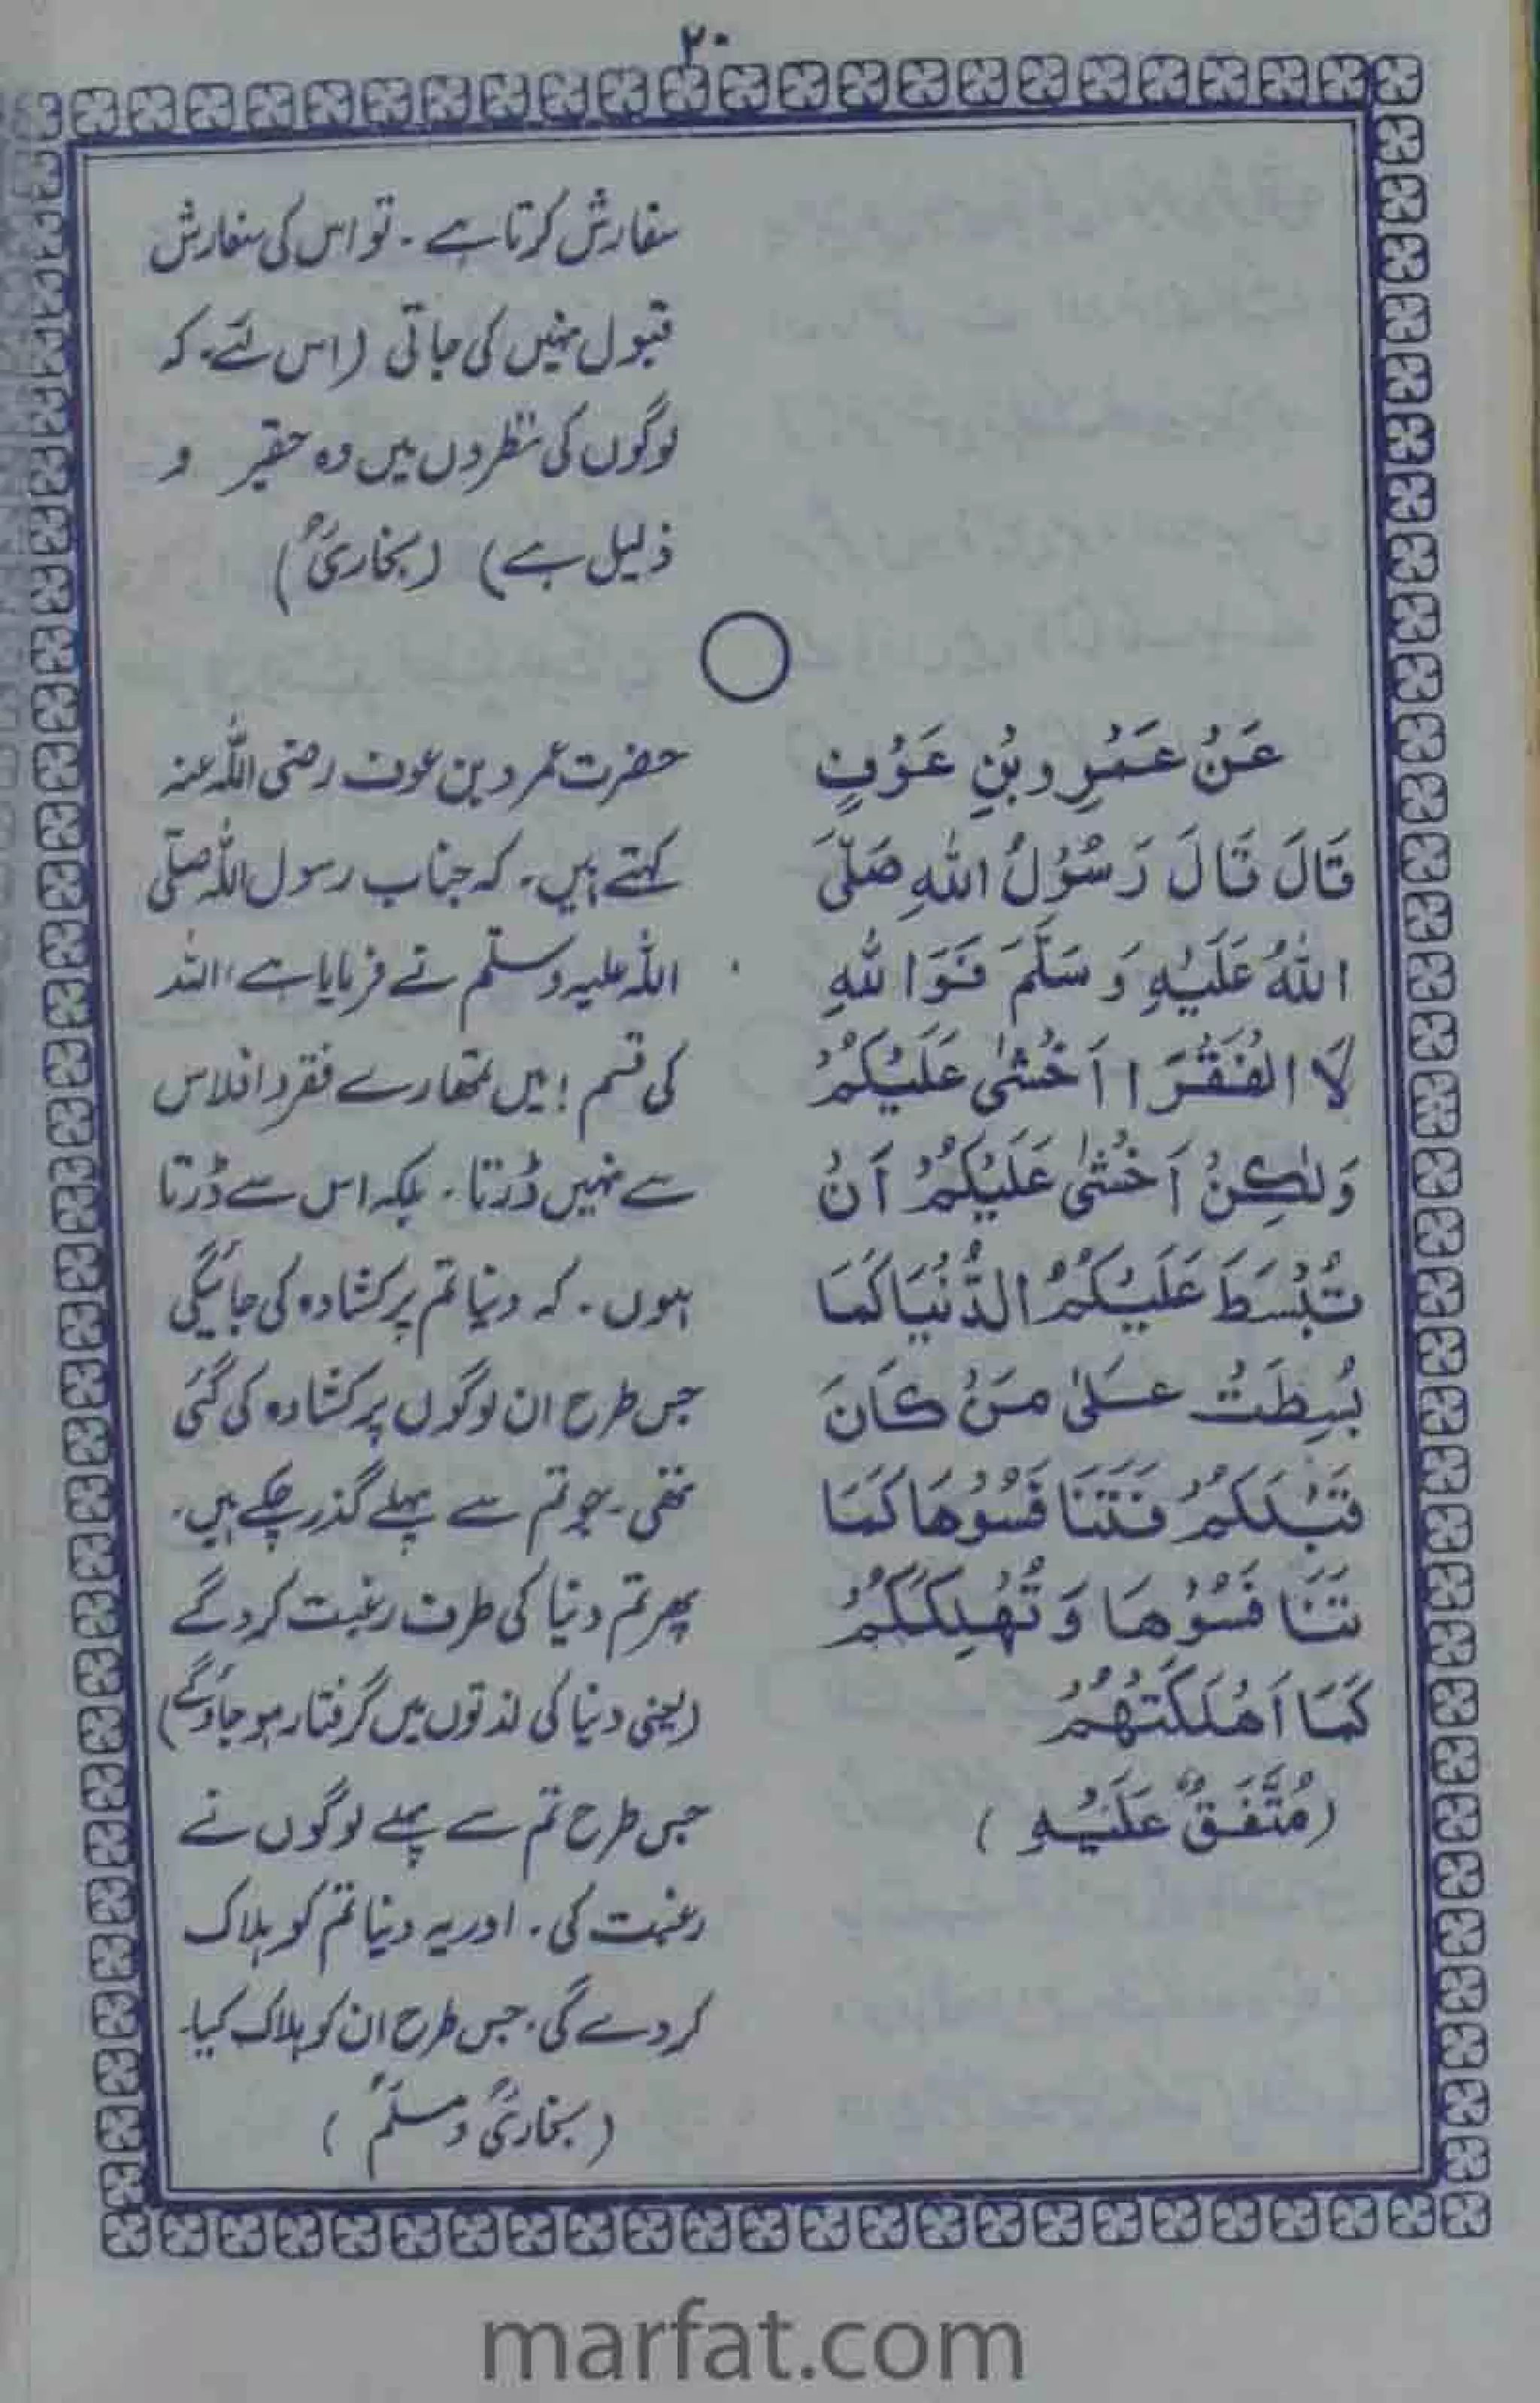 ۲۰
سفارش کرتا ہے۔ تو اس کی سفارش
قبول نہیں کی جاتی (اس لئے۔ کہ
لوگوں کی نظروں میں وہ حقیر و
ذلیل ہے) (بخاریؒ)
عَنْ عَمْرِو بْنِ عَوْفٍ
قَالَ قَالَ رَسُوْلُ اللهِ صَلَّى
اللهُ عَلَيْهِ وَسَلَّمَ فَوَاللهِ
لَا الْفَقْرَ ا اَخْشٰى عَلَيْكُمْ
وَلٰكِنْ اَخْشٰى عَلَيْكُمْ اَنْ
تُبْسَطَ عَلَيْكُمُ الدُّنْيَا كَمَا
بُسِطَتْ عَلٰى مَنْ كَانَ
قَبْلَكُمْ فَتَنَافَسُوْهَا كَمَا
تَنَافَسُوْهَا وَتُهْلِكَكُمْ
كَمَا اَهْلَكَتْهُمْ
(مُتَّفَقٌ عَلَيْهِ)
حضرت عمرو بن عوف رضی اللہ عنہ
کہتے ہیں۔ کہ جناب رسول اللہ صلّی
اللہ علیہ وسلّم نے فرمایا ہے، اللہ
کی قسم! میں تمھارے فقر و افلاس
سے نہیں ڈرتا۔ بلکہ اس سے ڈرتا
ہوں۔ کہ دنیا تم پر کشادہ کی جائیگی
جس طرح ان لوگوں پر کشادہ کی گئی
تھی۔ جو تم سے پہلے گذر چکے ہیں۔
پھر تم دنیا کی طرف رغبت کرو گے
(یعنی دنیا کی لذتوں میں گرفتار ہو جاؤ گے)
جس طرح تم سے پہلے لوگوں نے
رغبت کی۔ اور یہ دنیا تم کو ہلاک
کر دے گی۔ جس طرح ان کو ہلاک کیا۔
(بخاریؒ و مسلمؒ)
marfat.com